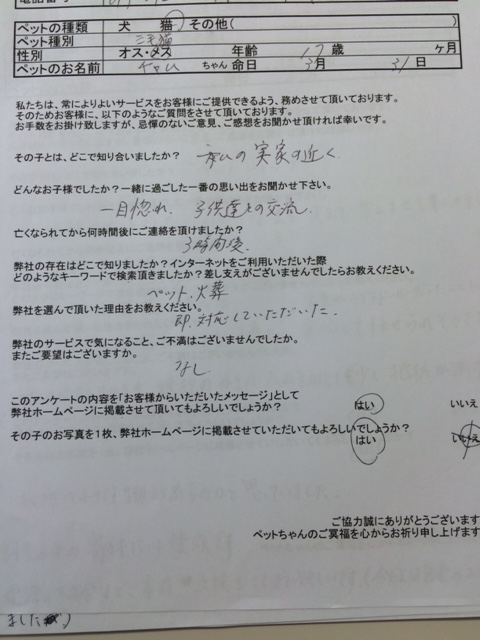 ペットの種類 犬 猫 その他( )
ペット種別 三毛猫
性別 オス・メス 年齢 17歳 ヶ月
ペットのお名前 チャム ちゃん 命日 3月 31日
私たちは、常によりよいサービスをお客様にご提供できるよう、務めさせて頂いております。
そのためお客様に、以下のようなご質問をさせて頂いております。
お手数をお掛け致しますが、忌憚のないご意見、ご感想をお聞かせ頂ければ幸いです。
その子とは、どこで知り合いましたか? 私の実家の近く
どんなお子様でしたか?一緒に過ごした一番の思い出をお聞かせ下さい。
一目惚れ、子供達との交流
亡くなられてから何時間後にご連絡を頂けましたか?
3時間後
弊社の存在はどこで知りましたか?インターネットをご利用いただいた際
どのようなキーワードで検索頂きましたか?差し支えがございませんでしたらお教えください。
ペット、火葬
弊社を選んで頂いた理由をお教えください。
即、対応していただいた。
弊社のサービスで気になること、ご不満はございませんでしたか。
またご要望はございますか。
なし
このアンケートの内容を「お客様からいただいたメッセージ」として
弊社ホームページに掲載させて頂いてもよろしいでしょうか? はい いいえ
その子のお写真を1枚、弊社ホームページに掲載させていただいてもよろしいでしょうか?
はい いいえ
ご協力誠にありがとうございます
ペットちゃんのご冥福を心からお祈り申し上げます